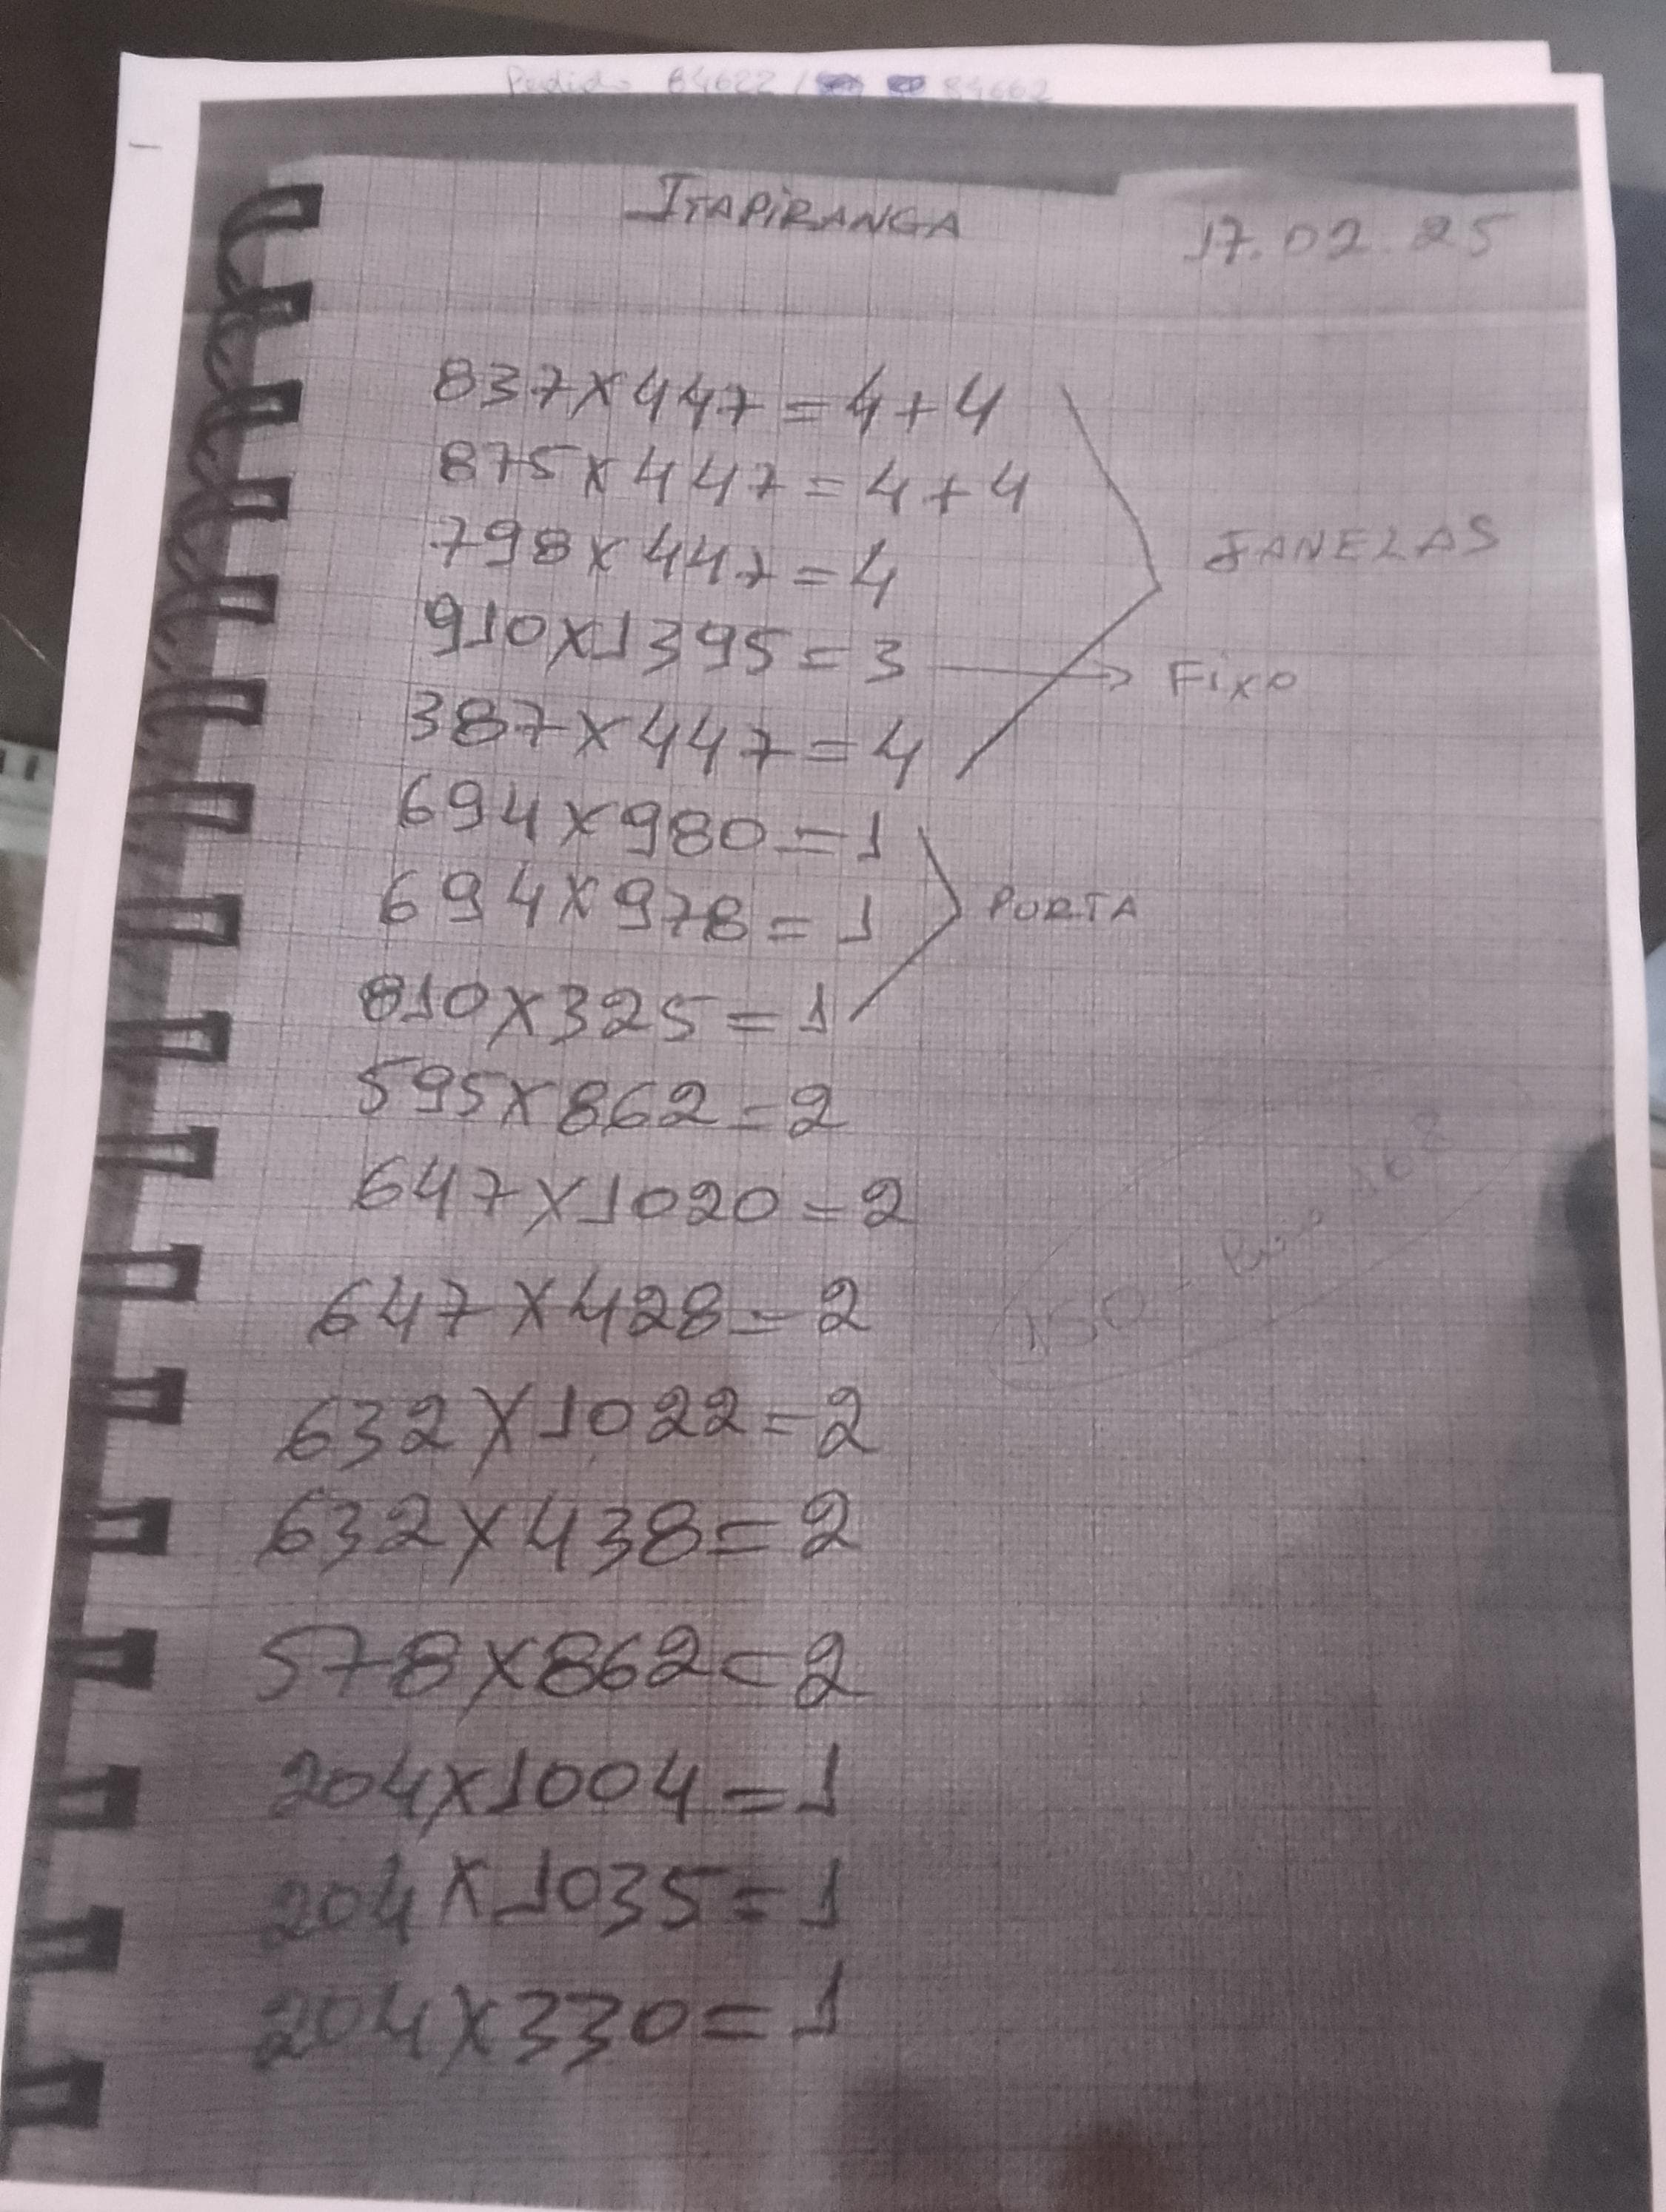 Pedido 84622 / 84662
ITAPIRANGA 17.02.25
837x447=4+4
875x447=4+4
798x447=4
JANELAS
910x1395=3 → Fixo
387x447=4
694x980=1
694x978=1
PORTA
810x325=1
595x862=2
647x1020=2
647x428=2
150 -
632x1022=2
632x438=2
578x862=2
204x1004=1
204x1035=1
204x330=1